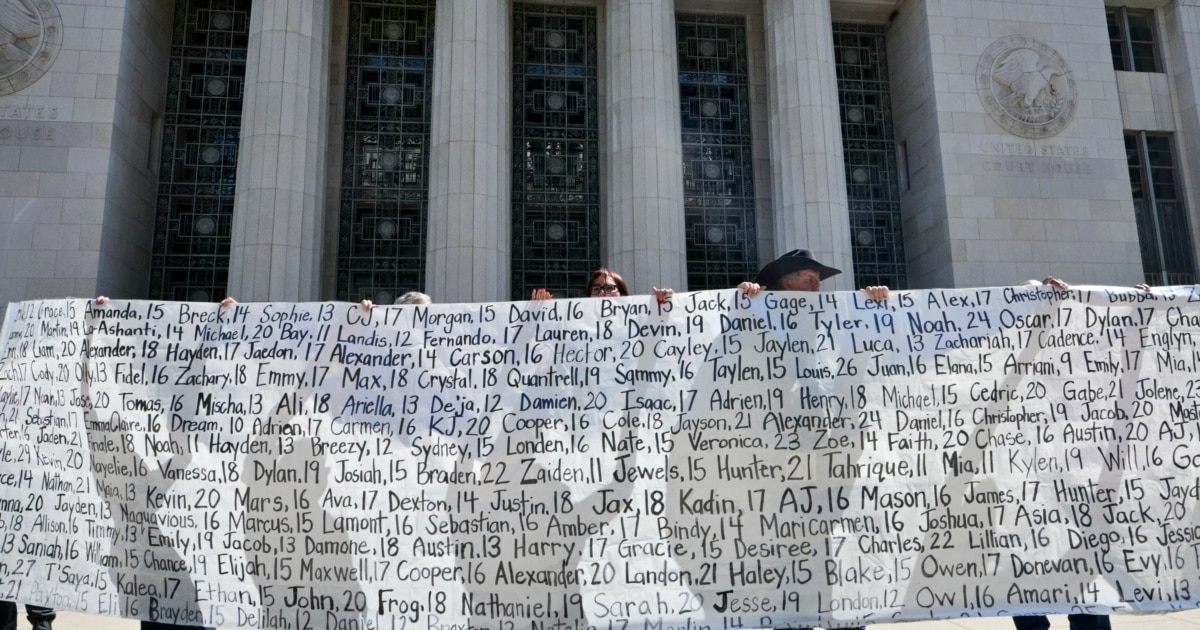 UNITED STATES
COURT HOUSE
STATES
HOUSE
Grace, 15 Amanda, 15 Breck, 14 Sophie, 13 CJ, 17 Morgan, 15 David, 16 Bryan, 15 Jack, 15 Gage, 14 Lexi, 15 Alex, 17 Christopher, 17 Bubba, 15
20 Martin, 19 La-Ashanti, 14 Michael, 20 Bay, 11 Landis, 12 Fernando, 17 Lauren, 18 Devin, 19 Daniel, 16 Tyler, 19 Noah, 24 Oscar, 17 Dylan, 17
18 Liam, 20 Alexander, 18 Hayden, 17 Jaedon, 17 Alexander, 14 Carson, 16 Hector, 20 Cayley, 15 Jaylen, 21 Luca, 13 Zachariah, 17 Cadence, 14 Englyn,
17 Cody, 20 Olly, 13 Fidel, 16 Zachary, 18 Emmy, 17 Max, 18 Crystal, 18 Quantrell, 19 Sammy, 16 Taylen, 15 Louis, 26 Juan, 16 Elana, 15 Arriani, 9 Emily, 17 Mia,
17 Noah, 13 20 Tomas, 16 Mischa, 13 Ali, 18 Ariella, 13 De'ja, 12 Damien, 20 Isaac, 17 Adrien, 19 Henry, 18 Michael, 15 Cedric, 20 Gabe, 21 Jolene,
21 Sebastian, 17 EmmaClaire, 16 Dream, 10 Adrien, 17 Carmen, 16 KJ, 20 Cooper, 16 Cole, 18 Jayson, 21 Alexander, 24 Daniel, 16 Christopher, 19 Jacob, 20
16 Jaden, 21 18 Noah, 11 Hayden, 13 Breezy, 12 Sydney, 15 Londen, 16 Nate, 15 Veronica, 23 Zoe, 14 Faith, 20 Chase, 16 Austin, 20 AJ,
24 Kevin, 20 Nayelie, 16 Vanessa, 18 Dylan, 19 Josiah, 15 Braden, 22 Zaiden, 11 Jewels, 15 Hunter, 21 Tahrique, 11 Mia, 11 Kylen, 19 Will, 16
14 Nathan, 21 13 Kevin, 20 Mars, 16 Ava, 17 Dexton, 14 Justin, 18 Jax, 18 Kadin, 17 AJ, 16 Mason, 16 James, 17 Hunter, 15
20 Jayden, 13 Naquavious, 16 Marcus, 15 Lamont, 16 Sebastian, 16 Amber, 17 Bindy, 14 Maricarmen, 16 Joshua, 17 Asia, 18 Jack, 20
18 Allison, 16 Timmy, 13 Emily, 19 Jacob, 13 Damohe, 18 Austin, 13 Harry, 17 Gracie, 15 Desiree, 17 Charles, 22 Lillian, 16 Diego, 16
13 Saniah, 16 William, 15 Chance, 19 Elijah, 15 Maxwell, 17 Cooper, 16 Alexander, 20 Landon, 21 Haley, 15 Blake, 15 Owen, 17 Donevan, 16 Evy, 16
27 T'Saya, 15 Kalea, 17 Ethan, 15 John, 20 Frog, 18 Nathaniel, 19 Sarah, 20 Jesse, 19 London, 12 Owl, 16 Amari, 14 Levi, 13
21 15 Eli, 16 Brayden, 15 Delilah, 12 Daniel, 12